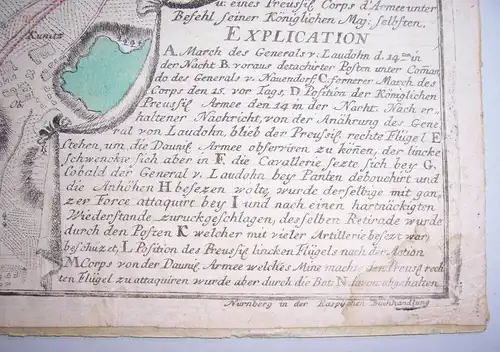 u. eines Preussis. Corps d'Armee unter
Befehl seiner Königlichen Maj: selbsten.
EXPLICATION
A. March des Generals v: Laudohn d. 14ten in
der Nacht B voraus detachirter Posten unter Coman
do des Generals v. Nauendorf C. fernerer March des
Corps den 15. vor Tags, D Position der Königlichen
Preussis Armee den 14 in der Nacht. Nach er-
haltener Nachricht, von der Anährung des Gene
ral von Laudohn, blieb der Preussis. rechte Flügel E
stehen, um die Daunis. Armee observiren zu könen, der lincke
schwenckte sich aber in F. die Cavallerie sezte sich bey G.
Cobald der General v. Laudohn bey Panten debouchirt und
die Anhöhen H besezen wolte, wurde derselbige mit gan,
zer Force attaquirt bey I und nach einen hartnäckigten
Wiederstande zuruckgeschlagen, desselben Retirade wurde
durch den Posten K welcher mit vieler Artillerie besezt war,
beschuzt, L Position des Preussis lincken Flügels nach der Action
M Corps von der Daunis. Armee welches Mine machte den Preuss rech
ten Flügel zu attaquiren wurde aber durch die Bat: N davon abgehalten
Nürnberg in der Raspischen Buchhandlung
Kunitz
See